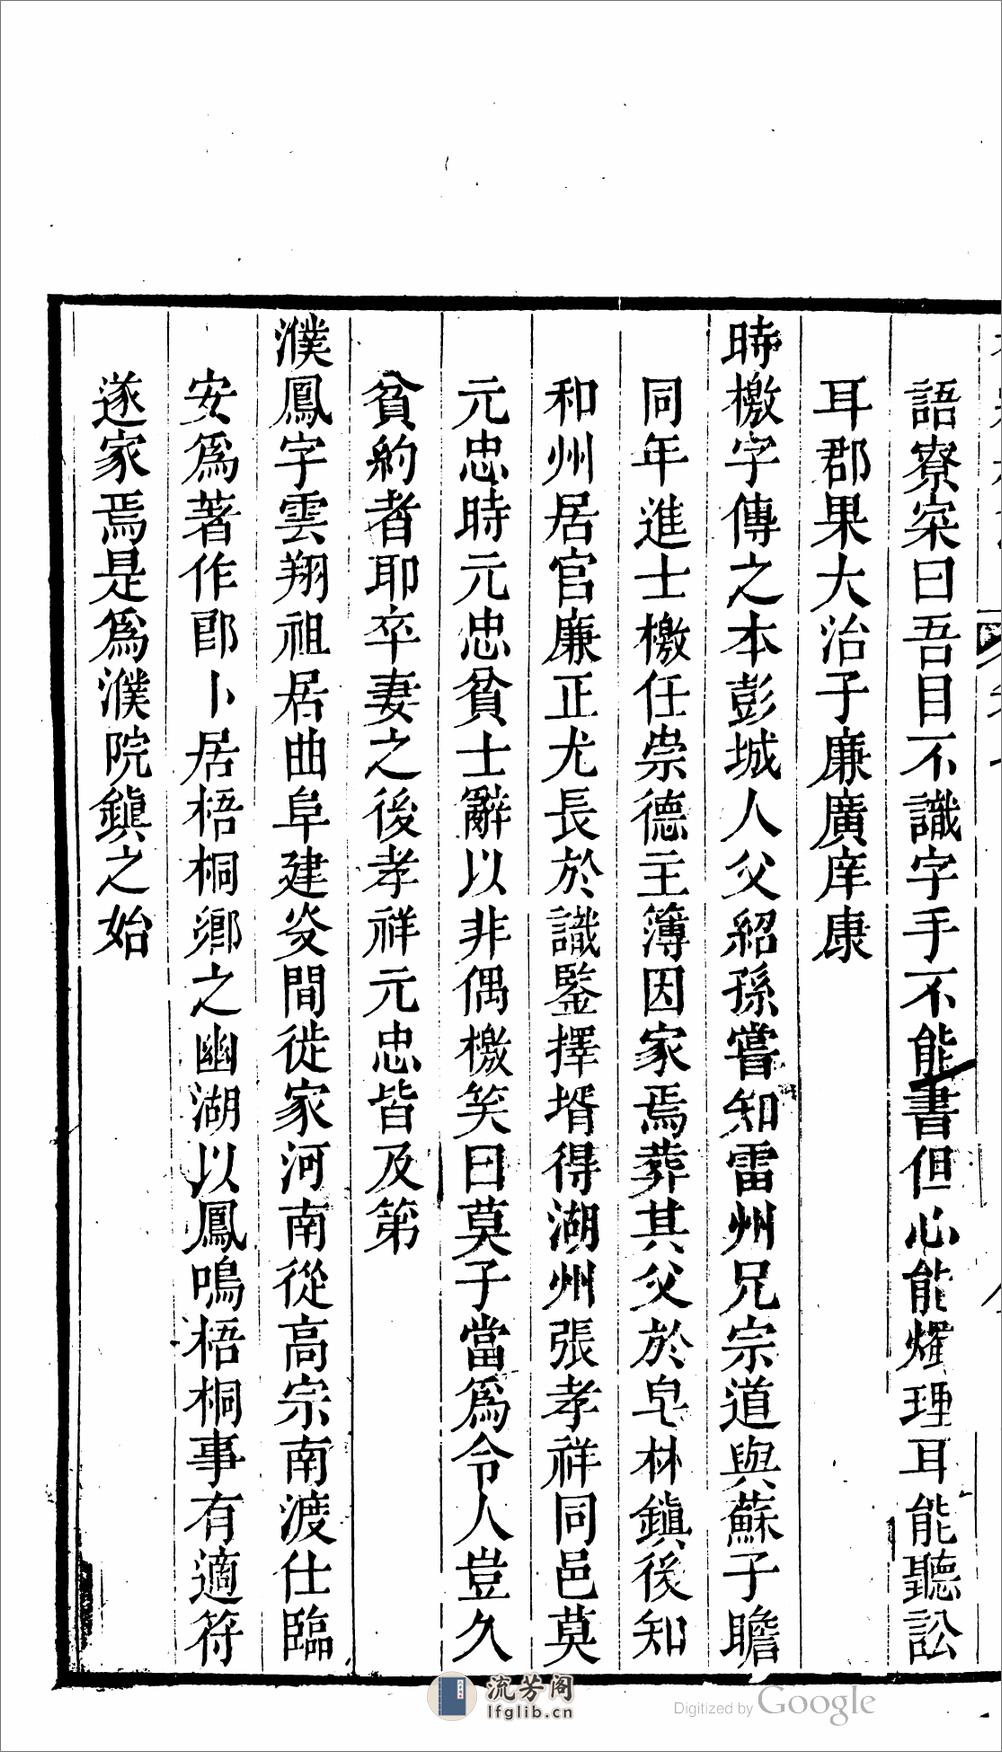 語寮寀曰吾目不識字手不能書但心能燮理耳能聽訟
耳郡果大治子廉廣庠康
時檄字傳之本彭城人父紹孫嘗知雷州兄宗道與蘇子瞻
同年進士檄任崇德主簿因家焉葬其父於皂林鎮後知
和州居官廉正尤長於識鑒擇壻得湖州張孝祥同邑莫
元忠時元忠貧士辭以非偶檄笑曰莫子當爲令人豈久
貧約者耶卒妻之後孝祥元忠皆及第
濮鳳字雲翔祖居曲阜建炎間徙家河南從高宗南渡仕臨
安爲著作郎卜居梧桐鄉之幽湖以鳳鳴梧桐事有適符
遂家焉是爲濮院鎮之始
流芳阁
lfglib.cn
Digitized by Google